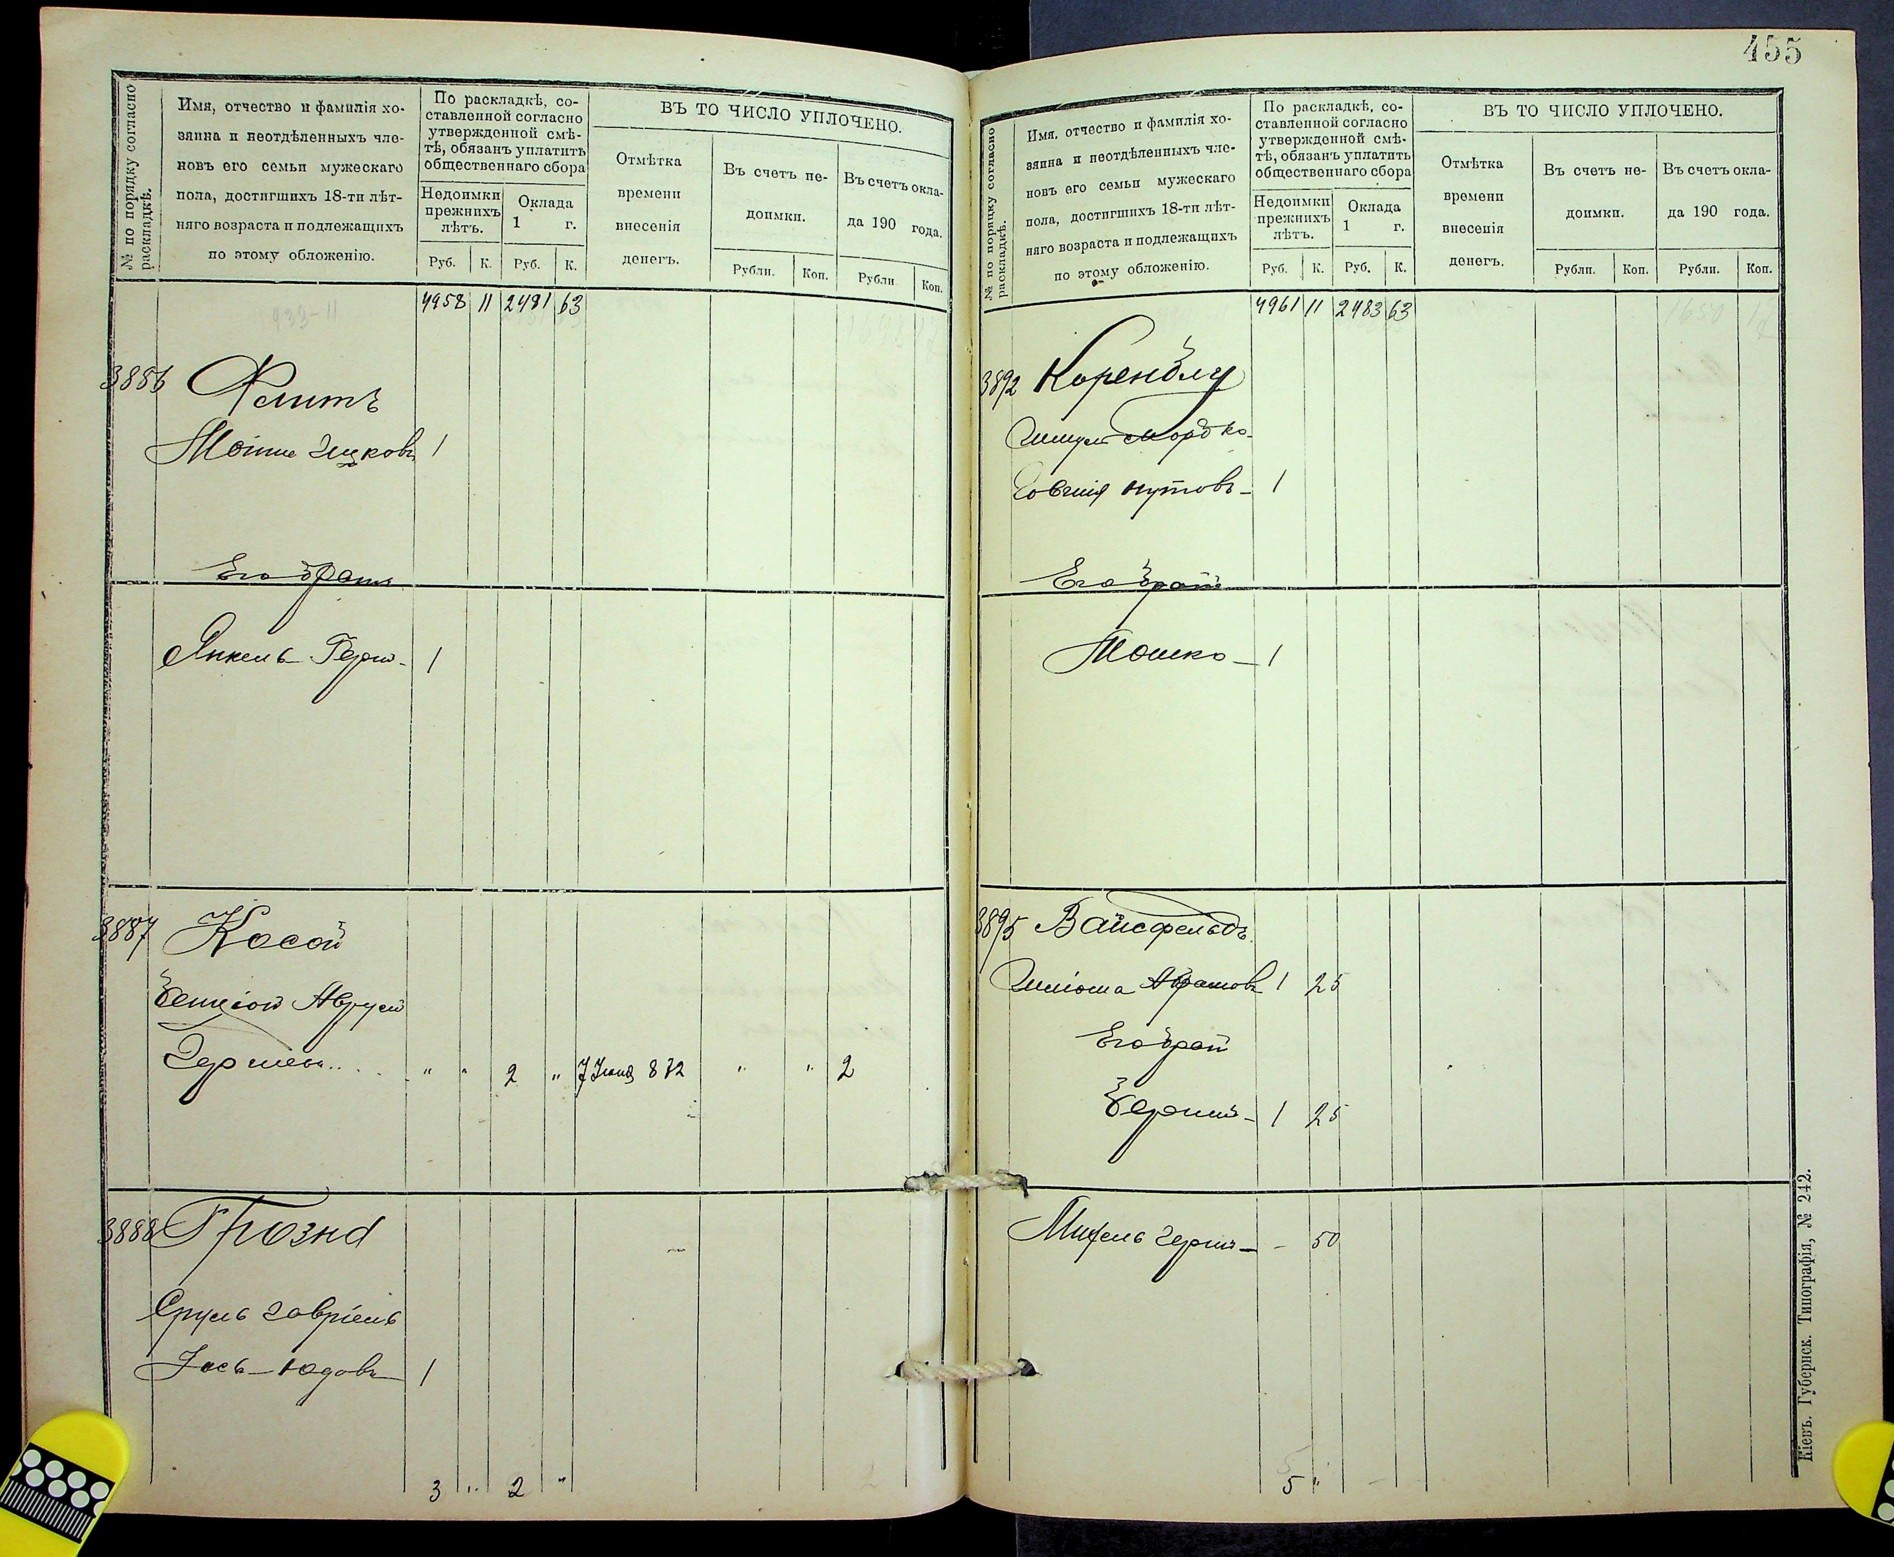 № по порядку согласно раскладкѣ.
Имя, отчество и фамилія хо-
зяина и неотдѣленныхъ чле-
новъ его семьи мужескаго
пола, достигшихъ 18-ти лѣт-
няго возраста и подлежащихъ
по этому обложенію.
По раскладкѣ, со-
ставленной согласно
утвержденной смѣ-
тѣ, обязанъ уплатить
общественнаго сбора
Недоимки
прежнихъ
лѣтъ.
Оклада
1 г.
Руб. К. Руб. К.
ВЪ ТО ЧИСЛО УПЛОЧЕНО.
Отмѣтка
времени
внесенія
денегъ.
Въ счетъ не-
доимки.
Въ счетъ окла-
да 190 года.
Рубли. Коп. Рубли Коп.
4958 11 2481 63
3886
Мошко Ицковъ 1
Его братъ
Янкель Герш- 1
3887 Косой
Бенціон Аврум
Гершовъ . . . " " 2 " 7 Іюня 8 72 " " 2
3888
Сруль Гавріель
Іось-Юдовъ 1
3 " 2 "
455
№ по порядку согласно раскладкѣ.
Имя, отчество и фамилія хо-
зяина и неотдѣленныхъ чле-
новъ его семьи мужескаго
пола, достигшихъ 18-ти лѣт-
няго возраста и подлежащихъ
по этому обложенію.
По раскладкѣ, со-
ставленной согласно
утвержденной смѣ-
тѣ, обязанъ уплатить
общественнаго сбора
Недоимки
прежнихъ
лѣтъ.
Оклада
1 г.
Руб. К. Руб. К.
ВЪ ТО ЧИСЛО УПЛОЧЕНО.
Отмѣтка
времени
внесенія
денегъ.
Въ счетъ не-
доимки.
Въ счетъ окла-
да 190 года.
Рубли. Коп. Рубли. Коп.
4961 11 2483 63
3892 Коренблу
Шмул Мордко-
1
Его брат
Мошко - 1
3895 Вайсфельдъ
Абрамовъ 1 25
Его брат
Берко - 1 25
Герш - - 50
5 "
Кіевъ. Губернск. Типографія, № 242.